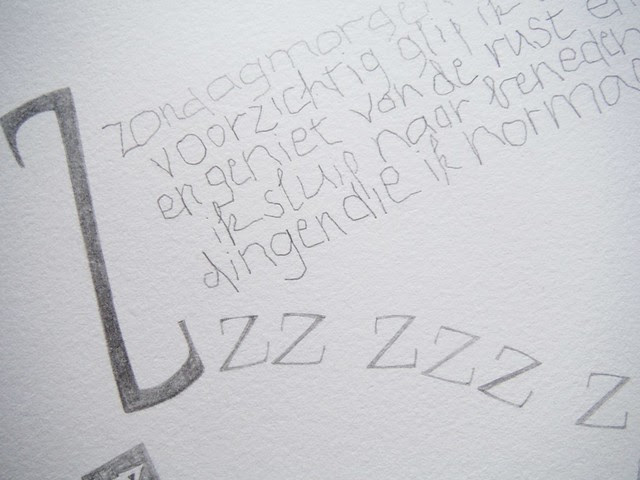 Z
zondagmorgen
voorzichtig glip ik
en geniet van de rust en
ik sluip naar beneden
dingen die ik norma
zz zzz z